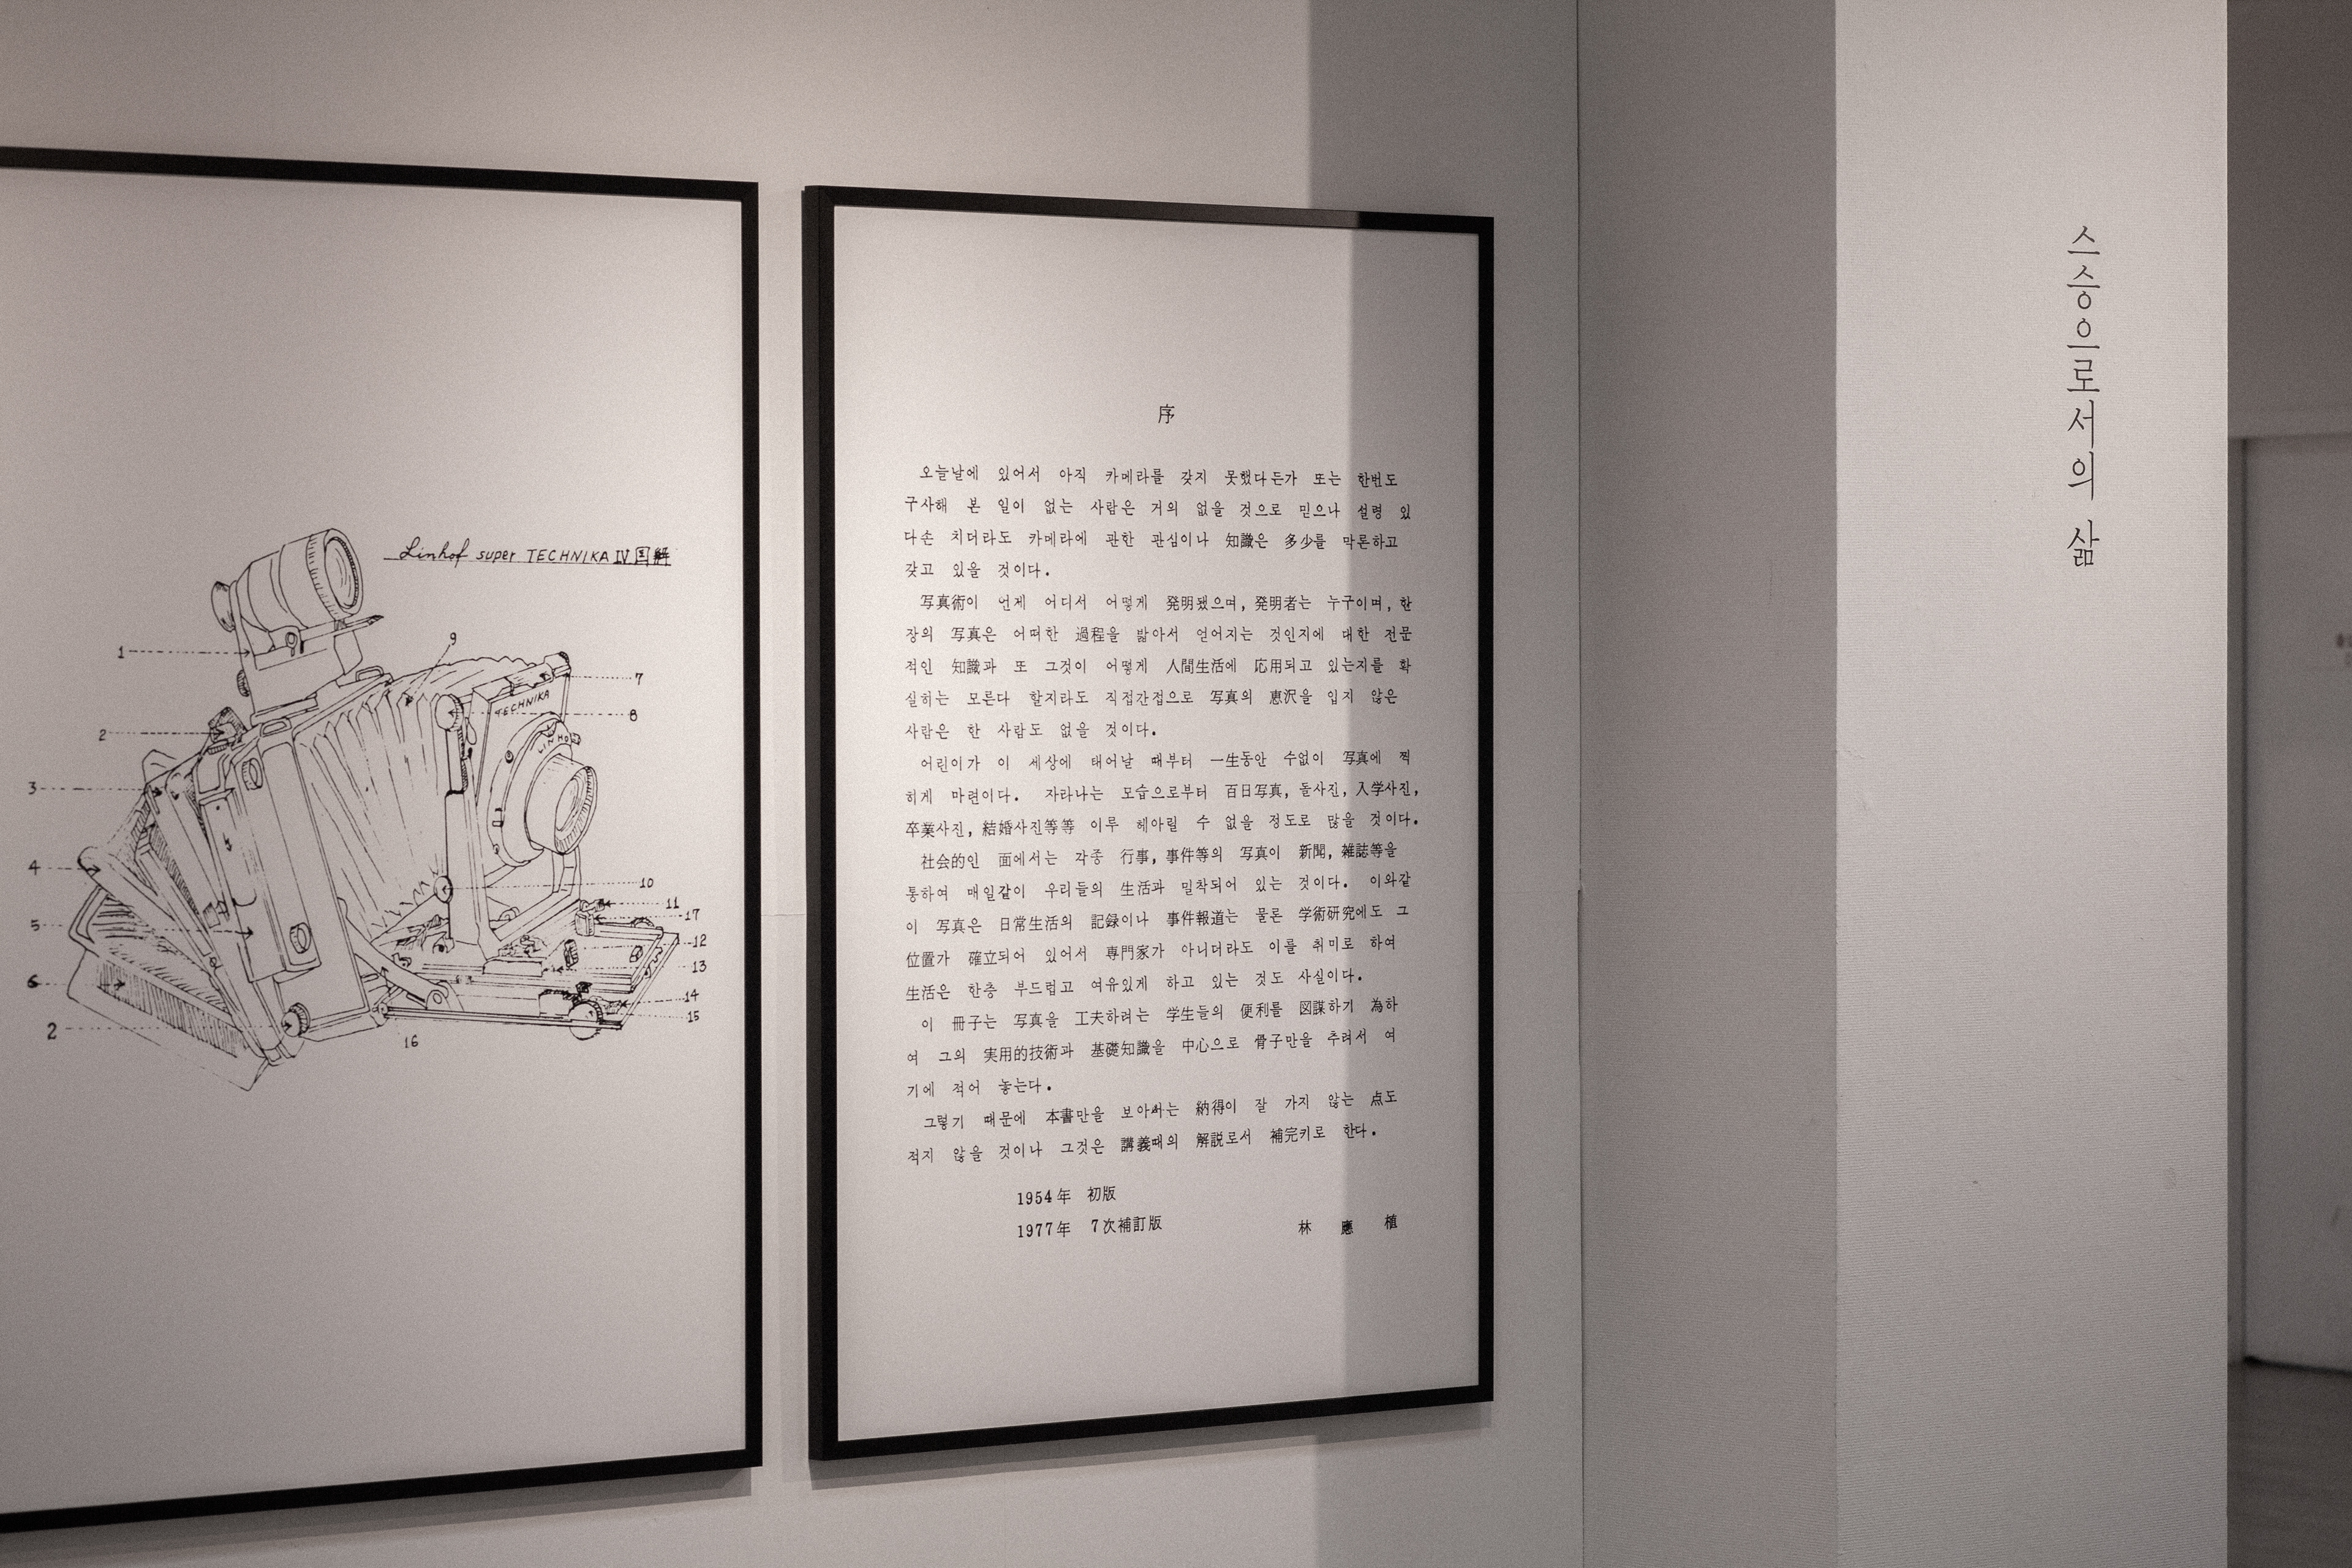 Linhof super TECHNIKA IV 図解
1
9
7
TECHNIKA
8
2
LINHOF
3
4
10
11
17
5
12
13
6
14
15
2
16
序
오늘날에 있어서 아직 카메라를 갖지 못했다든가 또는 한번도
구사해 본 일이 없는 사람은 거의 없을 것으로 믿으나 설령 있
다손 치더라도 카메라에 관한 관심이나 知識은 多少를 막론하고
갖고 있을 것이다.
写真術이 언제 어디서 어떻게 発明됐으며, 発明者는 누구이며, 한
장의 写真은 어떠한 過程을 밟아서 얻어지는 것인지에 대한 전문
적인 知識과 또 그것이 어떻게 人間生活에 応用되고 있는지를 확
실히는 모른다 할지라도 직접간접으로 写真의 恵沢을 입지 않은
사람은 한 사람도 없을 것이다.
어린이가 이 세상에 태어날 때부터 一生동안 수없이 写真에 찍
히게 마련이다. 자라나는 모습으로부터 百日写真, 돌사진, 入学사진,
卒業사진, 結婚사진等等 이루 헤아릴 수 없을 정도로 많을 것이다.
社会的인 面에서는 각종 行事, 事件等의 写真이 新聞, 雑誌等을
통하여 매일같이 우리들의 生活과 밀착되어 있는 것이다. 이와같
이 写真은 日常生活의 記録이나 事件報道는 물론 学術研究에도 그
位置가 確立되어 있어서 専門家가 아니더라도 이를 취미로 하여
生活은 한층 부드럽고 여유있게 하고 있는 것도 사실이다.
이 冊子는 写真을 工夫하려는 学生들의 便利를 図謀하기 為하
여 그의 実用的技術과 基礎知識을 中心으로 骨子만을 추려서 여
기에 적어 놓는다.
그렇기 때문에 本書만을 보아서는 納得이 잘 가지 않는 点도
적지 않을 것이나 그것은 講義때의 解説로서 補完키로 한다.
1954年 初版
1977年 7次補訂版 林 應 植
스승으로서의 삶